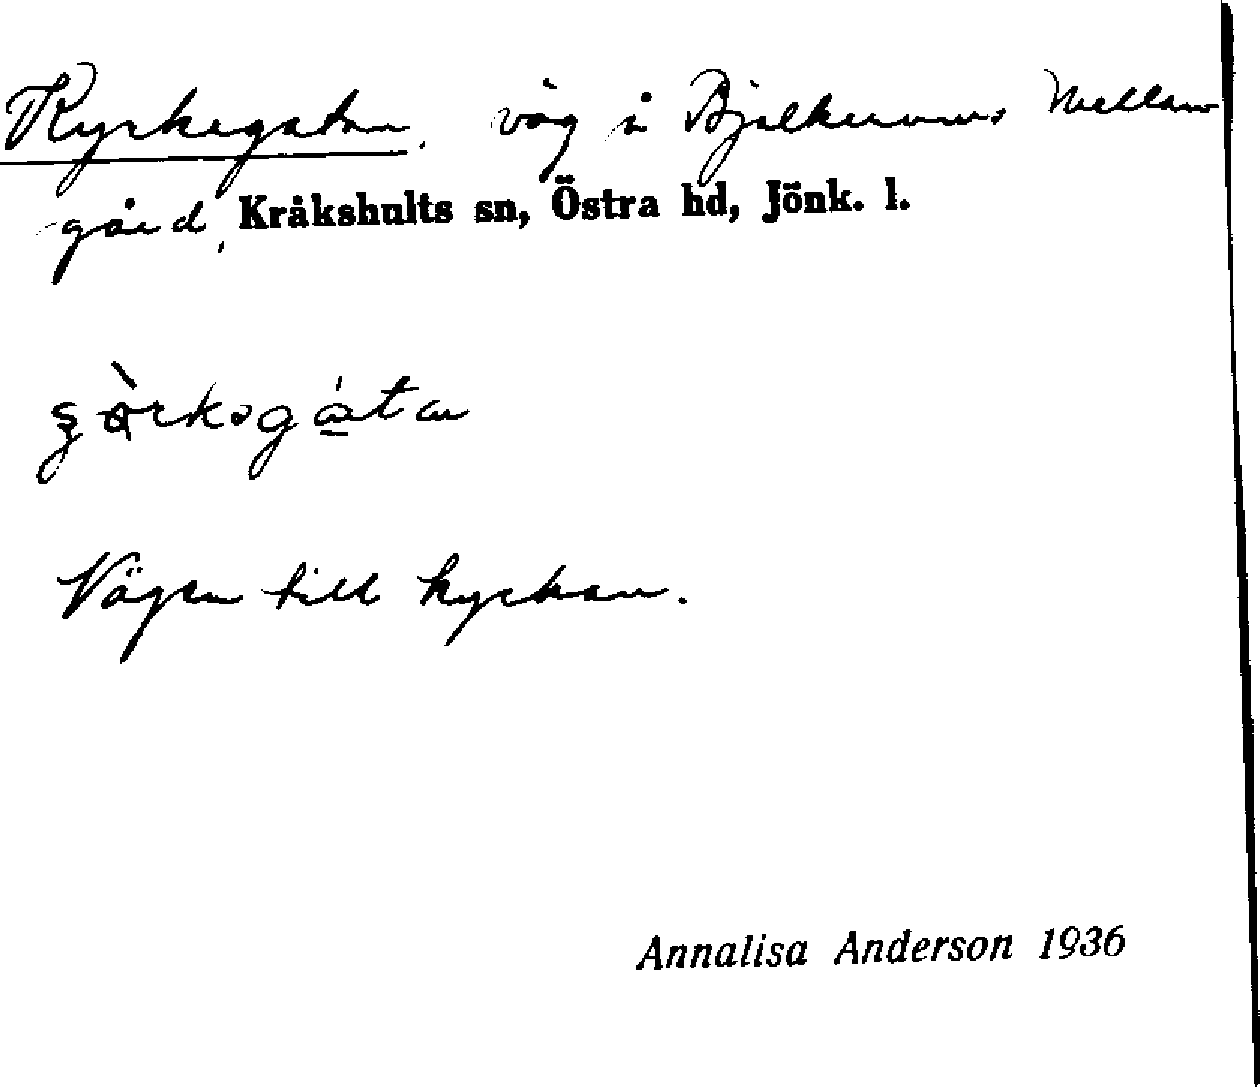 Kyrkegatan, väg å Bjälkerums Mellan-
gård, Kråkshults sn, Östra hd, Jönk. l.
Vägen till kyrkan.
Annalisa Anderson 1936